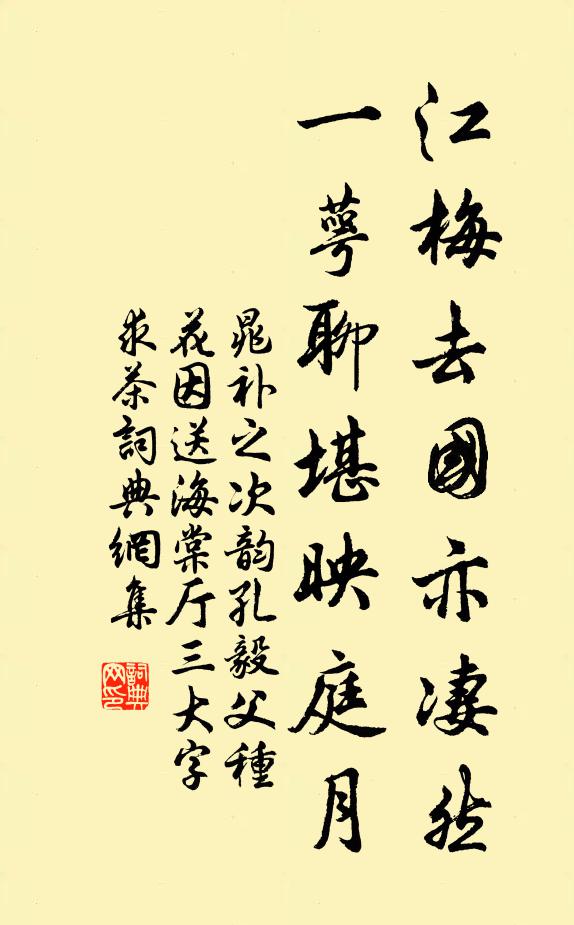 江梅去國亦凄然
一萼聊堪映庭月
晁补之次韵孔毅父種
花因送海棠厅三大字
求茶詞典網集
詞典网印